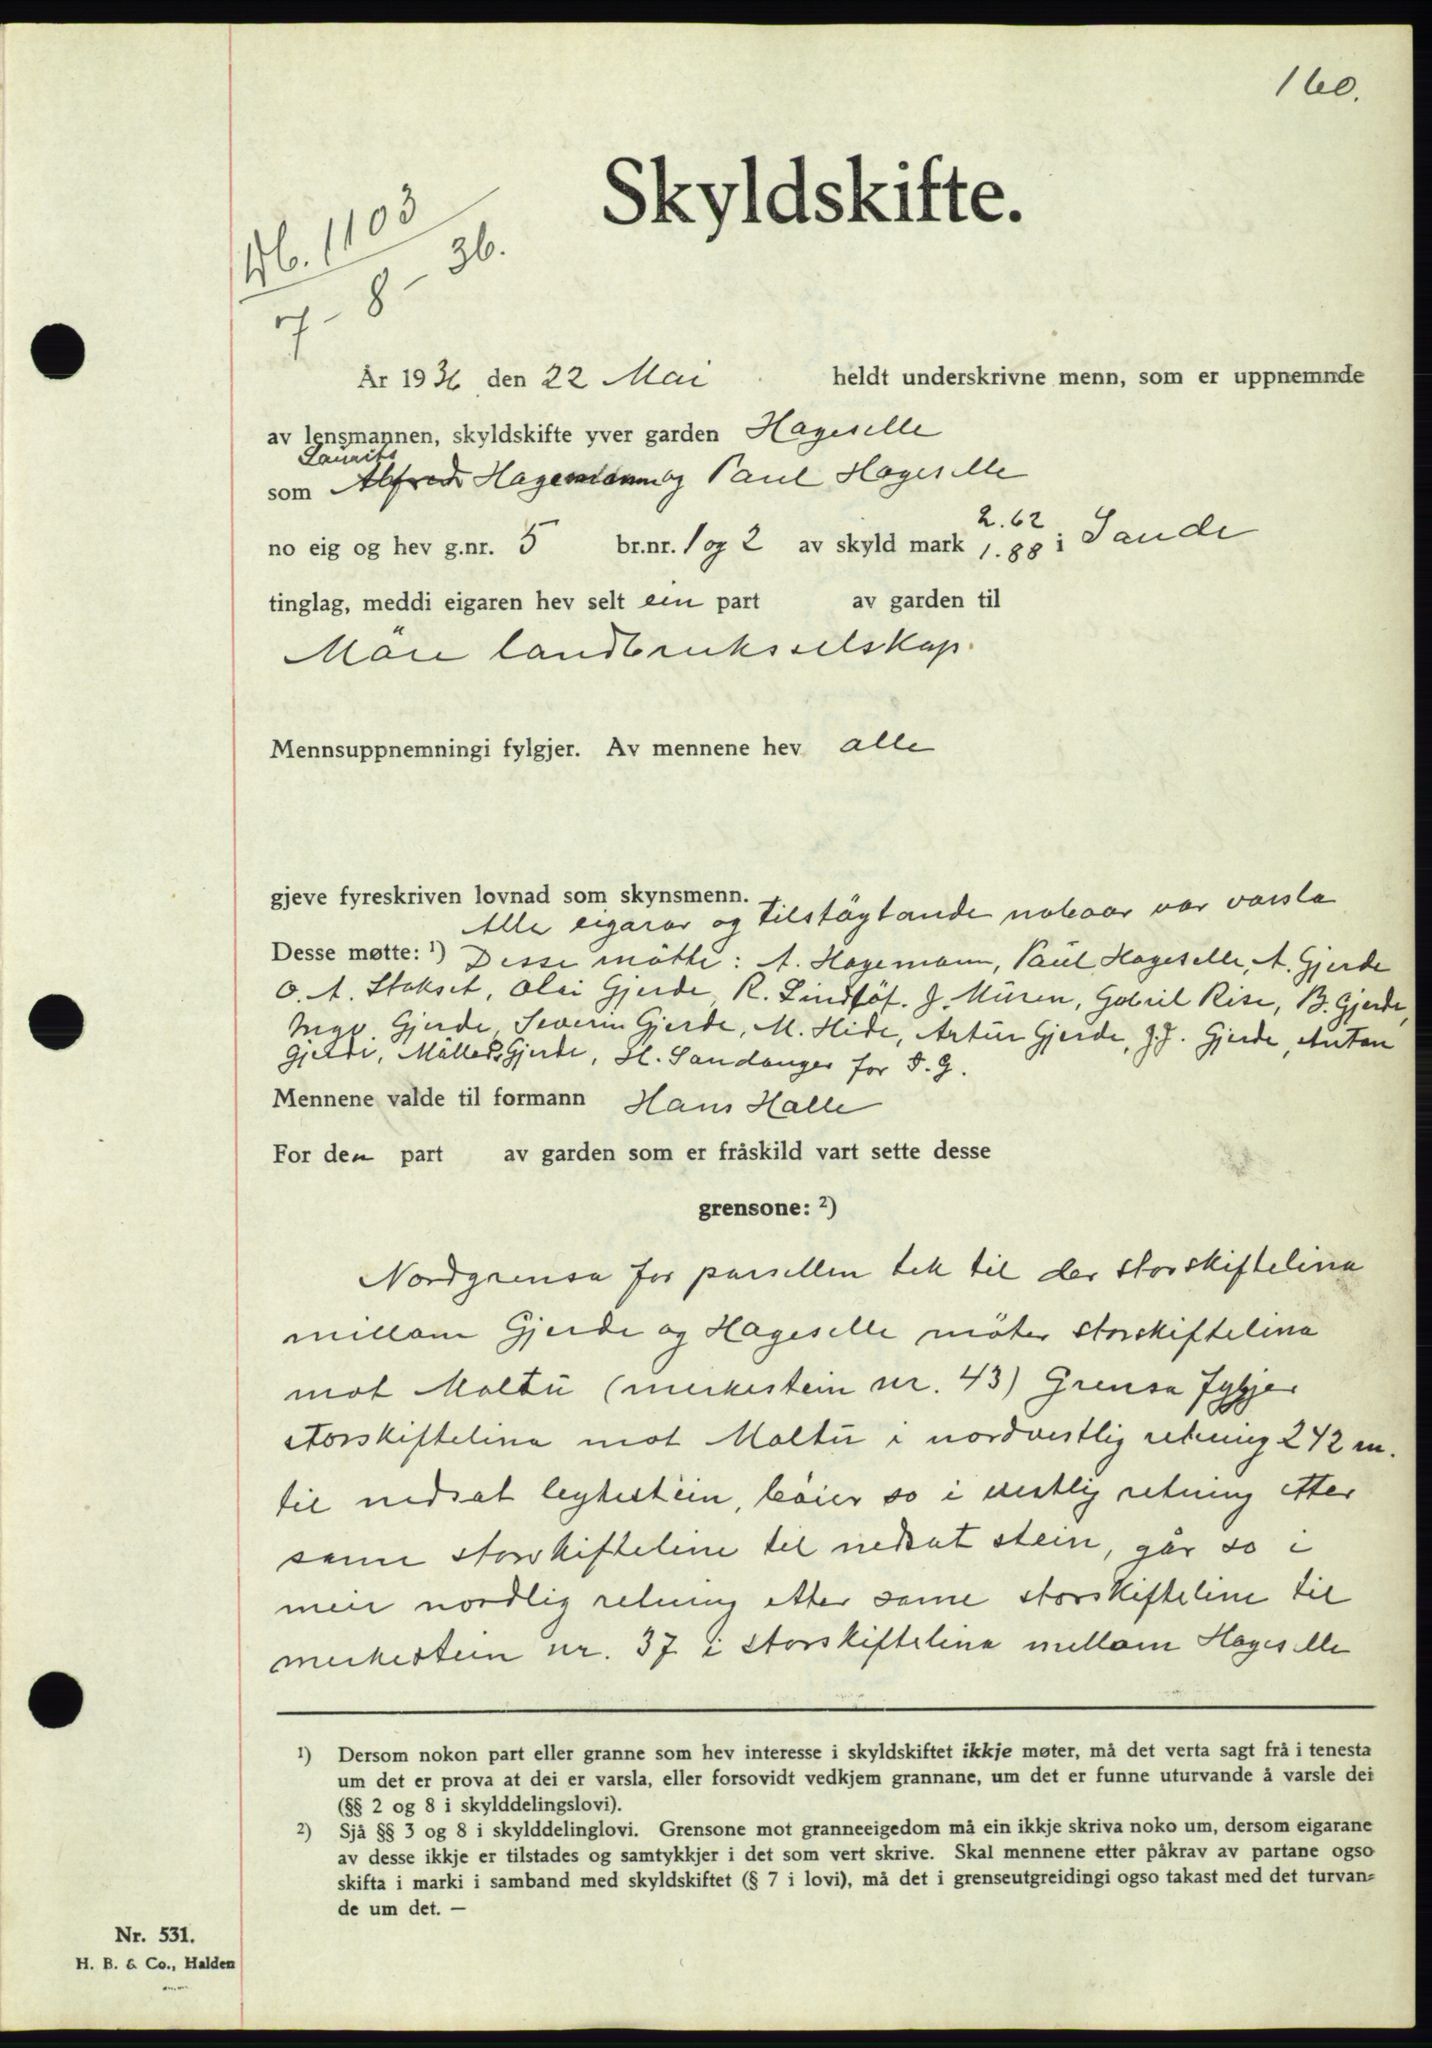 160.
Skyldskifte.
Db. 1103
7 - 8 - 36.
År 1936 den 22 Mai heldt underskrivne menn, som er uppnemnde
av lensmannen, skyldskifte yver garden Hageselle
Laurits
som Alfred Hagemann og Paul Hageselle
2.62
no eig og hev g.nr. 5 br.nr. 1 og 2 av skyld mark 1.88 i Sande
tinglag, meddi eigaren hev selt ein part av garden til
Möre landbruksselskap.
Mennsuppnemningi fylgjer. Av mennene hev alle
gjeve fyreskriven lovnad som skynsmenn.
Alle eigarar og tilstöytande naboar var varsla
Desse møtte: ¹) Desse mötte: A. Hagemann, Paul Hageselle, A. Gjerde
O. A. Stokset, Olai Gjerde, R. Lindtöf. J. Muren, Gabriel Rise, B. Gjerde,
Ingv. Gjerde, Severin Gjerde, M. Hide, Artur Gjerde, J.J. Gjerde, Anton
Gjerde, Gjerde, H. Sandanger for S. G.
Mennene valde til formann Hans Halle
For den part av garden som er fråskild vart sette desse
grensone: ²)
Nordgrensa for parsellen tek til der storskiftelina
millom Gjerde og Hageselle möter storskiftelina
mot Moltu (merkestein nr. 43) Grensa fygjer
storskiftelina mot Moltu i nordvestlig retning 242 m.
til nedsat legtestein, böier so i vestlig retning etter
same storskifteline til nedsat stein, går so i
meir nordlig retning etter same storskifteline til
merkestein nr. 37 i storskiftelina mellom Hageselle
¹) Dersom nokon part eller granne som hev interesse i skyldskiftet ikkje møter, må det verta sagt frå i tenesta
um det er prova at dei er varsla, eller forsovidt vedkjem grannane, um det er funne uturvande å varsle dei
(§§ 2 og 8 i skylddelingslovi).
²) Sjå §§ 3 og 8 i skylddelinglovi. Grensone mot granneeigedom må ein ikkje skriva noko um, dersom eigarane
av desse ikkje er tilstades og samtykkjer i det som vert skrive. Skal mennene etter påkrav av partane ogso
skifta i marki i samband med skyldskiftet (§ 7 i lovi), må det i grenseutgreidingi ogso takast med det turvan=
de um det. —
Nr. 531.
H. B. & Co., Halden